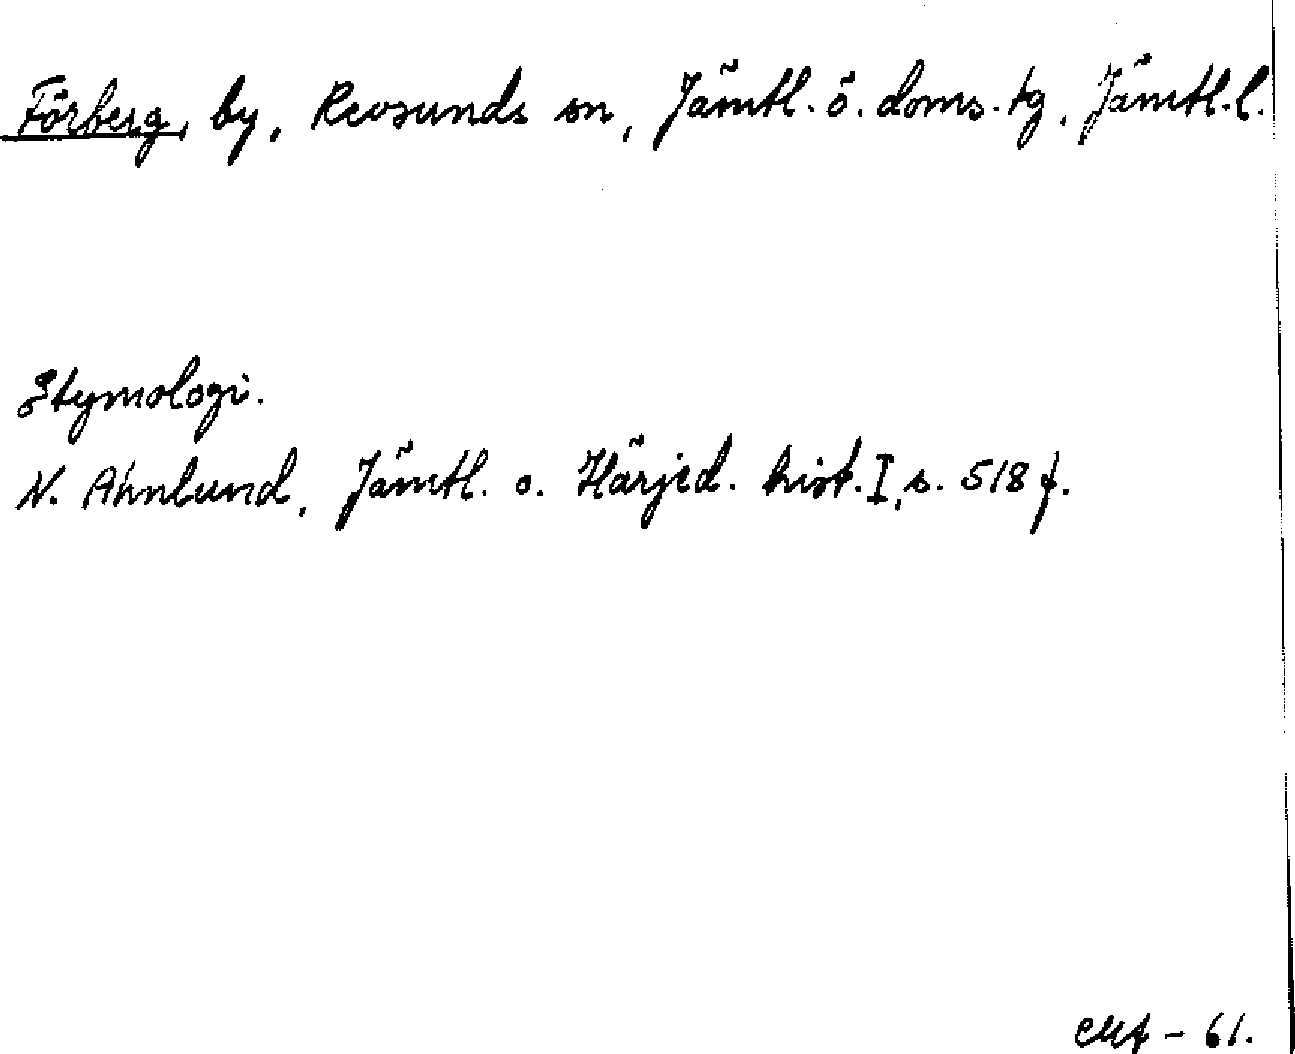 Förberg, by, Revsunds sn, Jämtl. ö. doms. tg, Jämtl. l.
Etymologi.
N. Ahnlund, Jämtl. o. Härjed. hist. I, s. 518 f.
- 61.